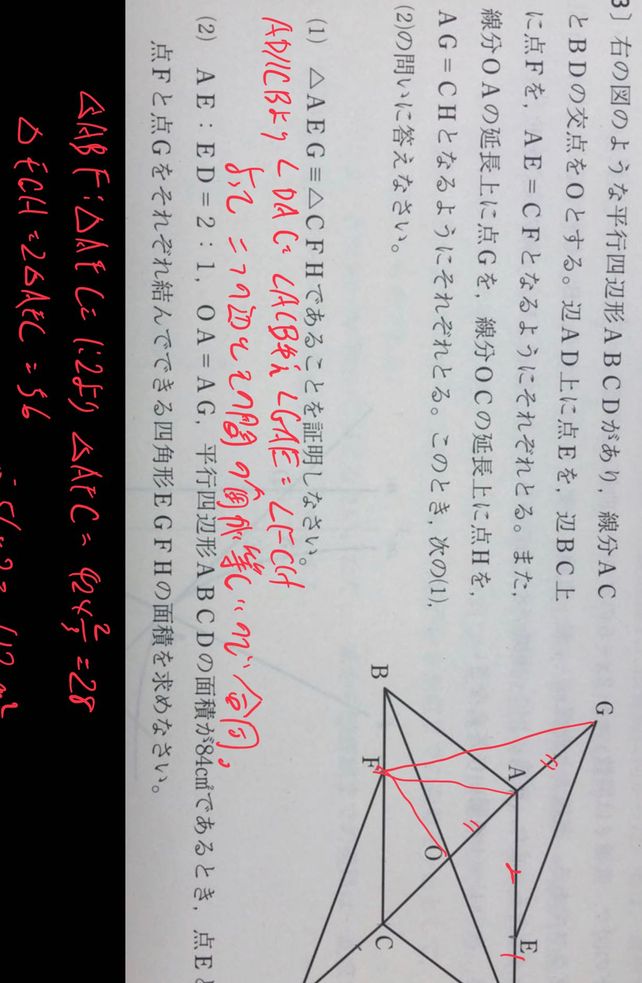 3〕 右の図のような平行四辺形ＡＢＣＤがあり，線分ＡＣ
とＢＤの交点をＯとする。辺ＡＤ上に点Ｅを，辺ＢＣ上
に点Ｆを，ＡＥ＝ＣＦとなるようにそれぞれとる。また，
線分ＯＡの延長上に点Ｇを，線分ＯＣの延長上に点Ｈを，
ＡＧ＝ＣＨとなるようにそれぞれとる。このとき，次の(1)，
(2)の問いに答えなさい。
(1) △ＡＥＧ≡△ＣＦＨであることを証明しなさい。
AD//CBより ∠DAC=∠ACB ∠GAE=∠FCH
よって 二つの辺とその間の角が等しいので合同。
(2) ＡＥ：ＥＤ＝2：1，ＯＡ＝ＡＧ，平行四辺形ＡＢＣＤの面積が84㎠であるとき，点Ｅと
点Ｆと点Ｇをそれぞれ結んでできる四角形ＥＧＦＨの面積を求めなさい。
△ABF:△AFC=1:2より △AFC=42×2/3=28
=2△AFC=56
G
A
E
B
F
O
C